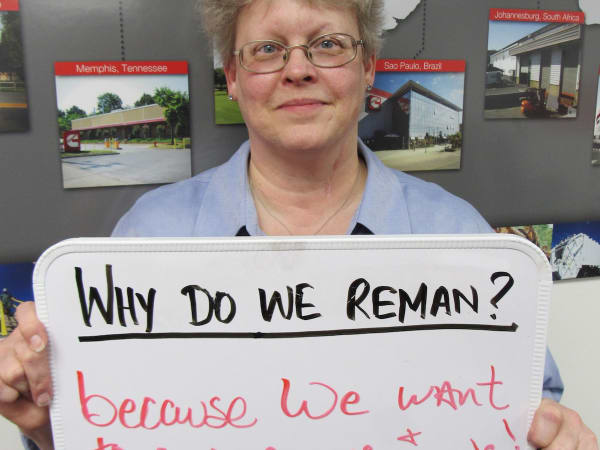 Memphis, Tennessee
Sao Paulo, Brazil
Johannesburg, South Africa
WHY DO WE REMAN?
because we want